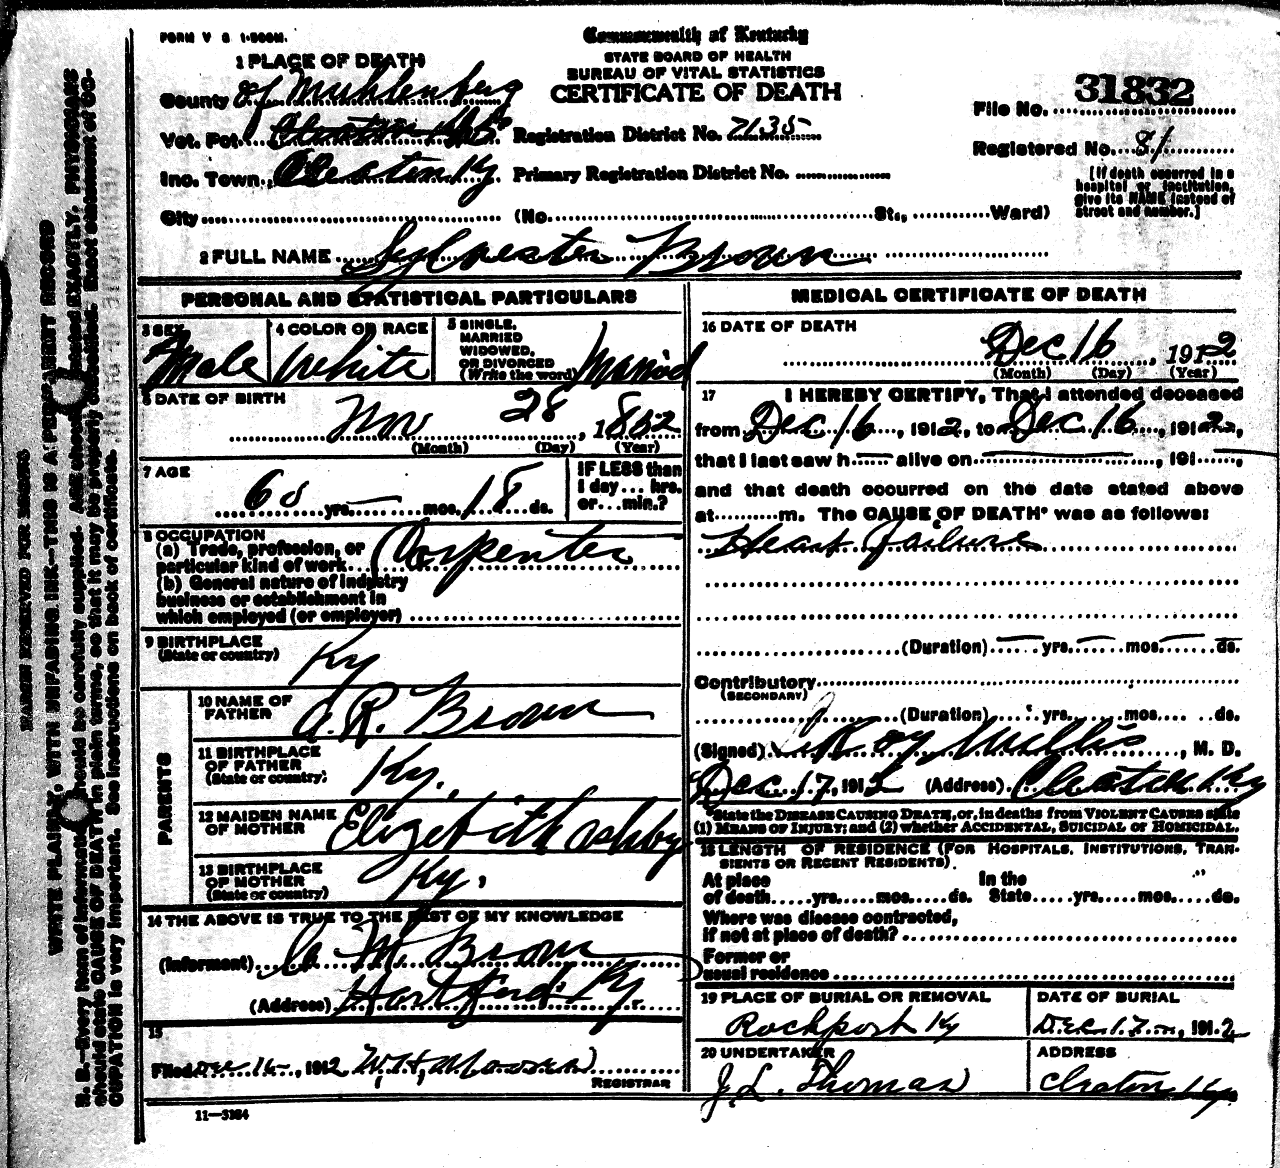 FORM V S 1-500M.
Commonwealth of Kentucky
STATE BOARD OF HEALTH
BUREAU OF VITAL STATISTICS
CERTIFICATE OF DEATH
1 PLACE OF DEATH
County of Muhlenberg
Vot. Pct. Cleaton Registration District No. 7135
Inc. Town Cleaton Ky Primary Registration District No.
City (No. St., Ward)
File No. 31832
Registered No. 81
[If death occurred in a hospital or institution, give its NAME instead of street and number.]
2 FULL NAME Sylvester Brown
PERSONAL AND STATISTICAL PARTICULARS
3 SEX Male
4 COLOR OR RACE White
5 SINGLE, MARRIED WIDOWED, OR DIVORCED (Write the word) Married
6 DATE OF BIRTH
Nov 28, 1852
(Month) (Day) (Year)
7 AGE
60 yrs. mos. 18 ds.
IF LESS than 1 day... hrs. or... min.?
8 OCCUPATION
(a) Trade, profession, or particular kind of work Carpenter
(b) General nature of industry business or establishment in which employed (or employer)
9 BIRTHPLACE
(State or country) Ky
PARENTS
10 NAME OF FATHER A. R. Brown
11 BIRTHPLACE OF FATHER (State or country) Ky.
12 MAIDEN NAME OF MOTHER Elizebith Ashby
13 BIRTHPLACE OF MOTHER (State or country) Ky.
14 THE ABOVE IS TRUE TO THE BEST OF MY KNOWLEDGE
(Informant) M. Brown
(Address) Hartford Ky
15
Filed Dec 16, 1912 W. H. REGISTRAR
11—3184
MEDICAL CERTIFICATE OF DEATH
16 DATE OF DEATH
Dec 16, 1912
(Month) (Day) (Year)
17 I HEREBY CERTIFY, That I attended deceased
from Dec 16, 1912, to Dec 16, 1912,
that I last saw h alive on , 191 ,
and that death occurred on the date stated above
at m. The CAUSE OF DEATH* was as follows:
Heart Failure
(Duration) yrs. mos. ds.
Contributory
(SECONDARY)
(Duration) yrs. mos. ds.
(Signed) Roy Willis, M. D.
Dec 17, 1912 (Address) Cleaton Ky
*State the DISEASE CAUSING DEATH, or, in deaths from VIOLENT CAUSES state
(1) MEANS OF INJURY; and (2) whether ACCIDENTAL, SUICIDAL or HOMICIDAL.
18 LENGTH OF RESIDENCE (FOR HOSPITALS, INSTITUTIONS, TRANSIENTS OR RECENT RESIDENTS)
At place of death yrs. mos. ds. In the State yrs. mos. ds.
Where was disease contracted,
if not at place of death?
Former or
usual residence
19 PLACE OF BURIAL OR REMOVAL
Rockport Ky
DATE OF BURIAL
Dec. 17, 1912
20 UNDERTAKER
J. L. Thomas
ADDRESS
Cleaton Ky.
MARGIN RESERVED FOR BINDING
WRITE PLAINLY, WITH UNFADING INK—THIS IS A PERMANENT RECORD
N. B.—Every item of information should be carefully supplied. AGE should be stated EXACTLY. PHYSICIANS
should state CAUSE OF DEATH in plain terms, so that it may be properly classified. Exact statement of OC-
CUPATION is very important. See instructions on back of certificate.